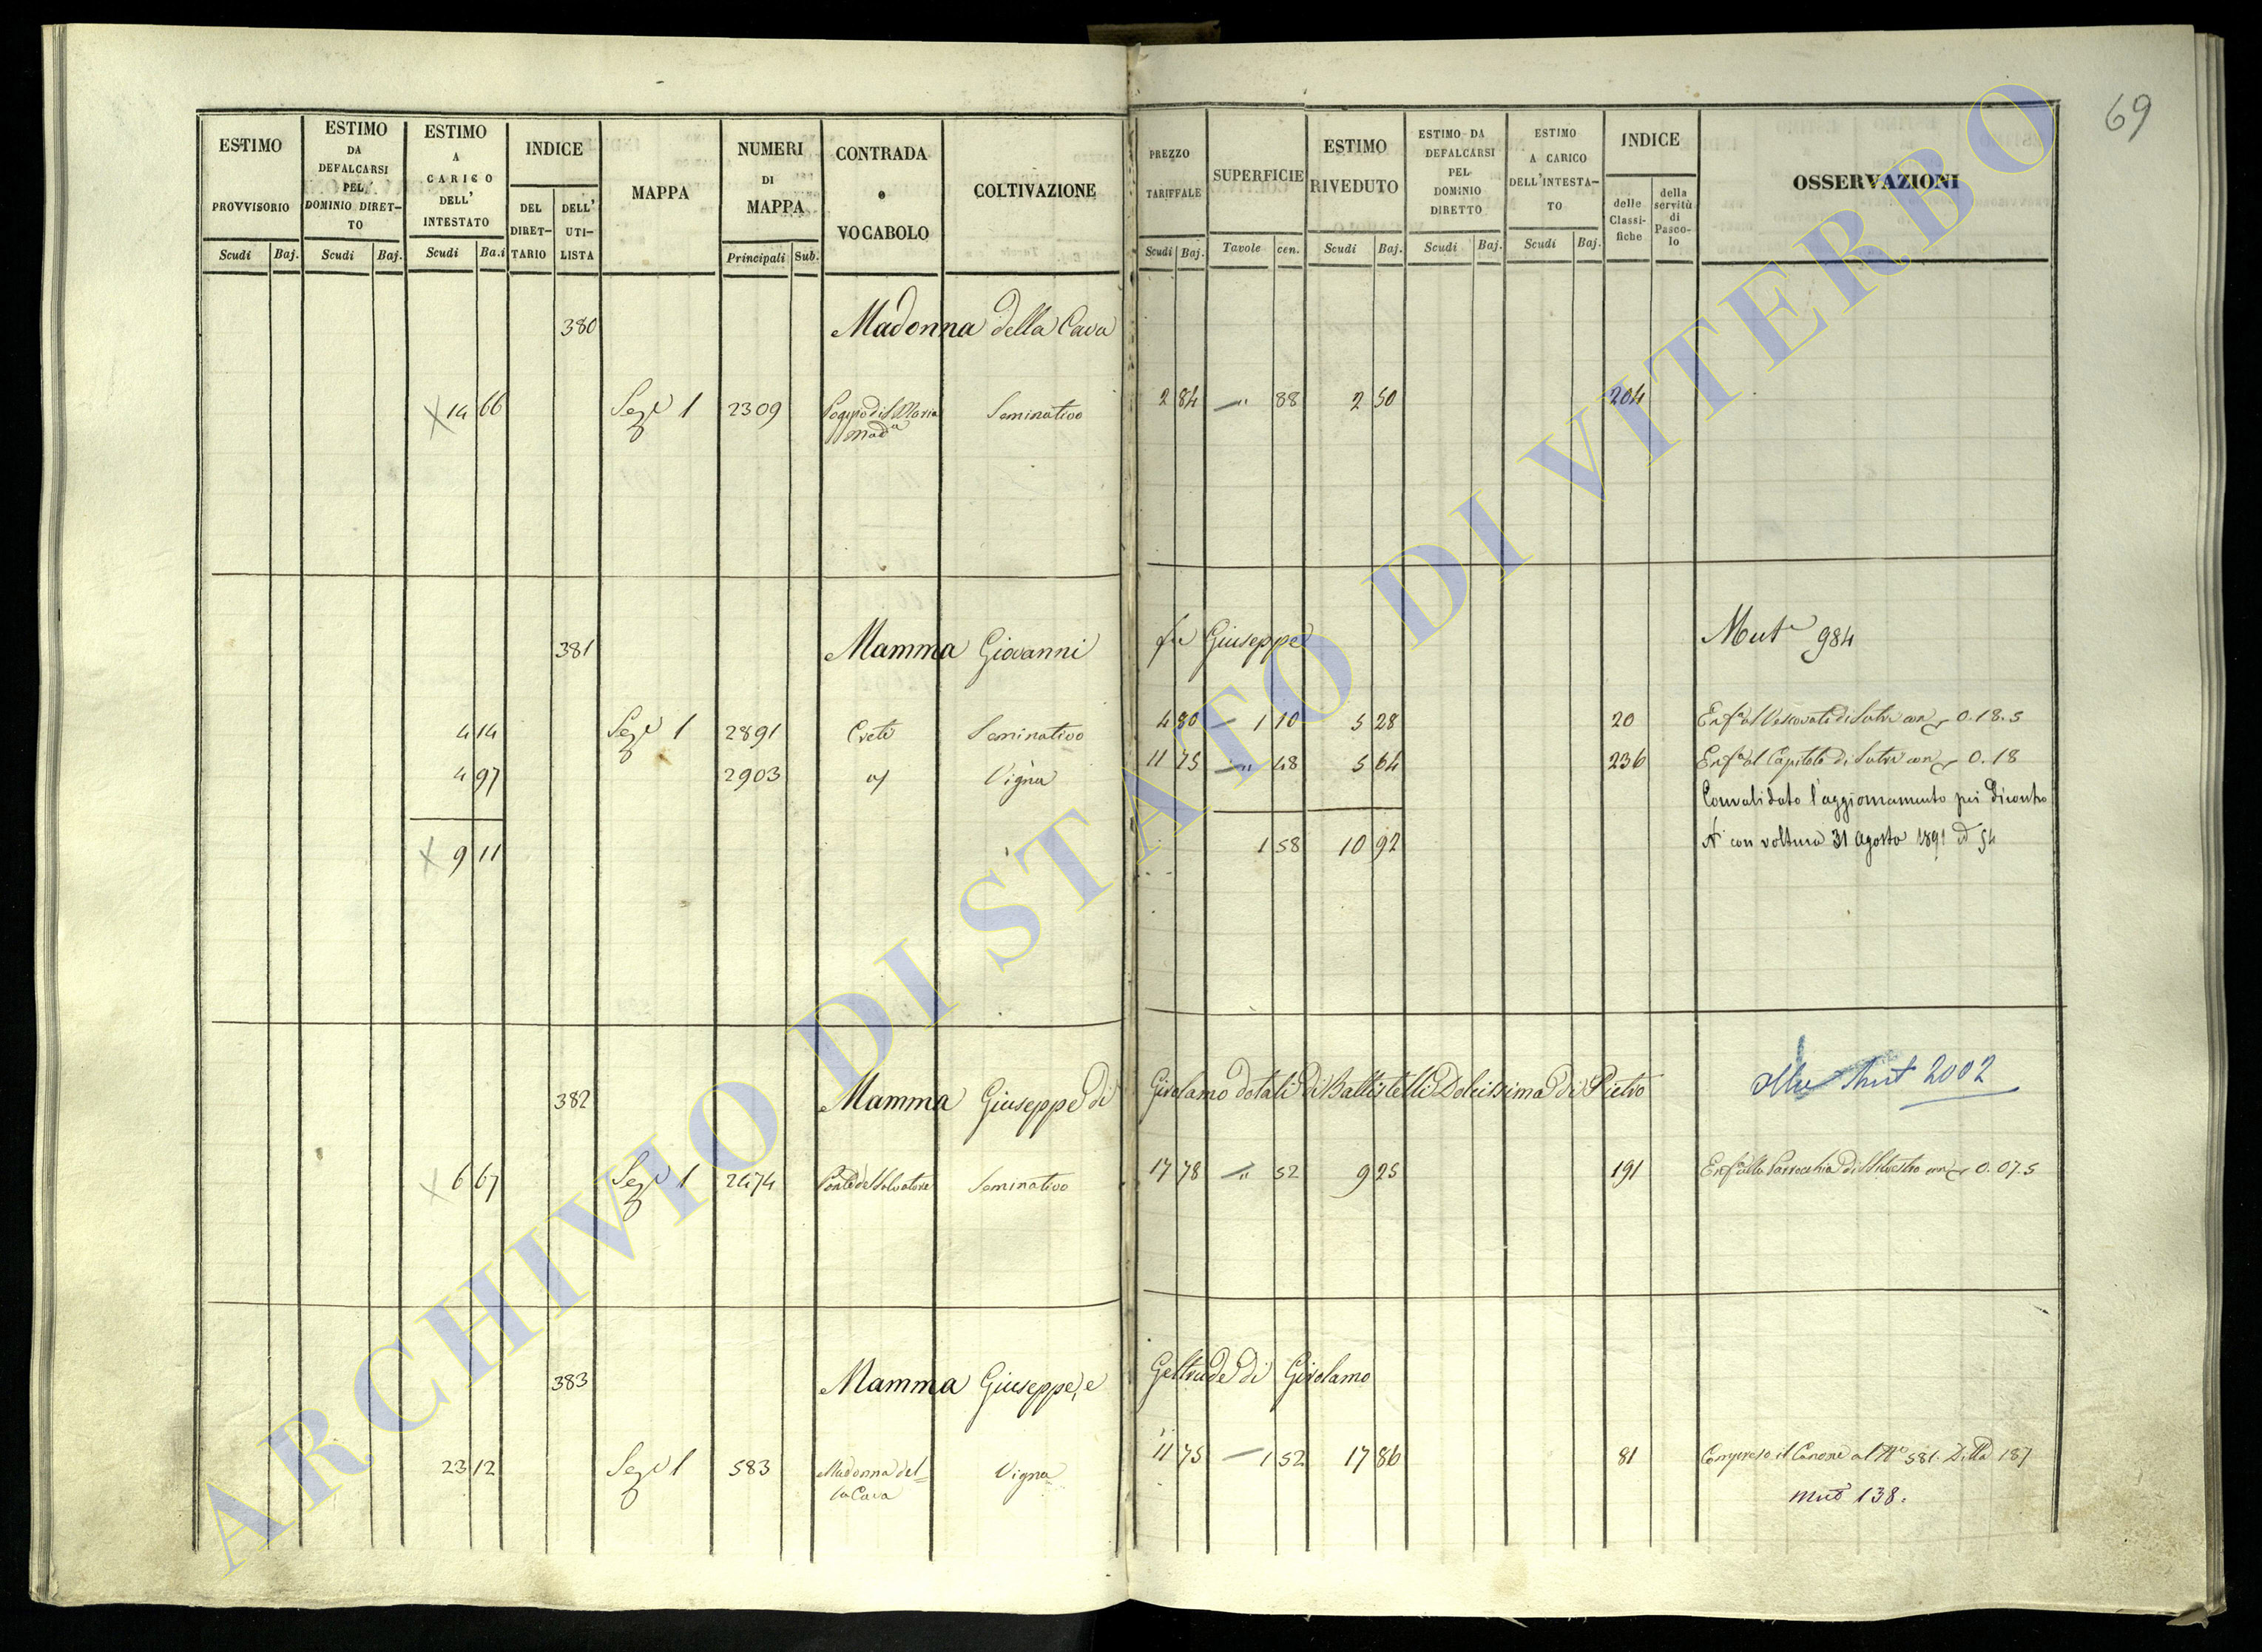 69
ESTIMO PROVVISORIO Scudi Baj.
ESTIMO DA DEFALCARSI PEL DOMINIO DIRETTO Scudi Baj.
ESTIMO A CARICO DELL' INTESTATO Scudi Ba.i
INDICE DEL DIRETTARIO DELL' UTILISTA
MAPPA
NUMERI DI MAPPA Principali Sub.
CONTRADA o VOCABOLO
COLTIVAZIONE
PREZZO TARIFFALE Scudi Baj.
SUPERFICIE Tavole cen.
ESTIMO RIVEDUTO Scudi Baj.
ESTIMO DA DEFALCARSI PEL DOMINIO DIRETTO Scudi Baj.
ESTIMO A CARICO DELL'INTESTATO Scudi Baj.
INDICE delle Classifiche della servitù di Pascolo
OSSERVAZIONI
380 Madonna della Cava
14 66 Sez.e 1 2309 Poggio di S. Maria Seminativo 2 84 — " 88 2 50 204
Mad.a
381 Mamma Giovanni fu Giuseppe Mut.e 984
4 14 Sez.e 1 2891 Creti Seminativo 4 80 — 1 10 5 28 20 Enf.a al Vescovato di Sutri con 0.18.5
4 97 2903 Vigna 11 75 — " 48 5 64 236 Enf.a al Capitolo di Sutri con 0.18
Convalidato l'aggiornamento pei dicontro
9 11 1 58 10 92 N.i con voltura 31 Agosto 1891 54
382 Mamma Giuseppe di Girolamo dotali di Battistelli Dolcissima di Pietro Mut 2002
6 67 Sez.e 1 2474 Ponte del Salvatore Seminativo 17 78 — " 52 9 25 191 Enf.a alla Parrocchia di S. Silvestro con 0.07.5
383 Mamma Giuseppe, e Geltrude di Girolamo
23 12 Sez.e 1 583 Madonna del= Vigna 11 75 — 1 52 17 86 81 Compreso il Canone al N.o 581. Ditta 187
la Cava mut 138.
ARCHIVIO DI STATO DI VITERBO